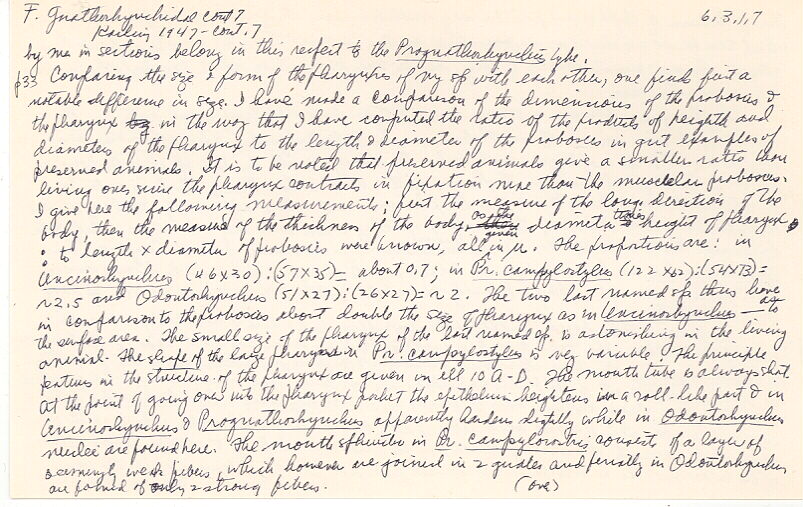 F. Gnathorhynchidae cont 7
6, 3, 1, 7
Karling 1947 - cont. 7
by me in sections belong in this respect to the Prognathorhynchus type.
p33 Comparing the size & form of the pharynges of my sp with each other, one finds first a
notable difference in size. I have made a comparison of the dimensions of the proboscis &
the pharynx in the way that I have computed the ratio of the products of heighth and
diameters of the pharynx to the length & diameter of the proboscis in gut examples of
preserved animals. It is to be noted that preserved animals give a smaller ratio than
living ones since the pharynx contracts in fixation more than the muscular proboscis.
I give here the following measurements; first the measure of the long direction of the
body, then the measure of the thickness of the body, as the given diameter times height of pharynx
: to length x diameter of proboscis were known, all in µ. The proportions are: in
Uncinorhynchus (46x30):(57x35)= about 0,7; in Pr. campylostylus (122x62):(54x73)=
~2.5 and Odontorhynchus (51x27):(26x27)= ~2. The two last named sp thus have
in comparison to the proboscis about double the size of pharynx as in Uncinorhynchus — as to
the surface area. The small size of the pharynx of the last named sp. is astonishing in the living
animal. The shape of the large pharynx in Pr. campylostylus is very variable. The principle
features in the structure of the pharynx are given in ill 10 A-D. The mouth tube is always short
At the point of going over into the pharynx pocket the epithelium heightens in a roll-like part & in
Uncinorhynchus & Prognathorhynchus apparently hardens distally while in Odontorhynchus
nuclei are found here. The mouth sphincter in Pr. campylostylus consists of a layer of
seemingly weak fibers, which however are joined in 2 girdles and finally in Odontorhynchus
are formed of only 2 strong fibers. (over)